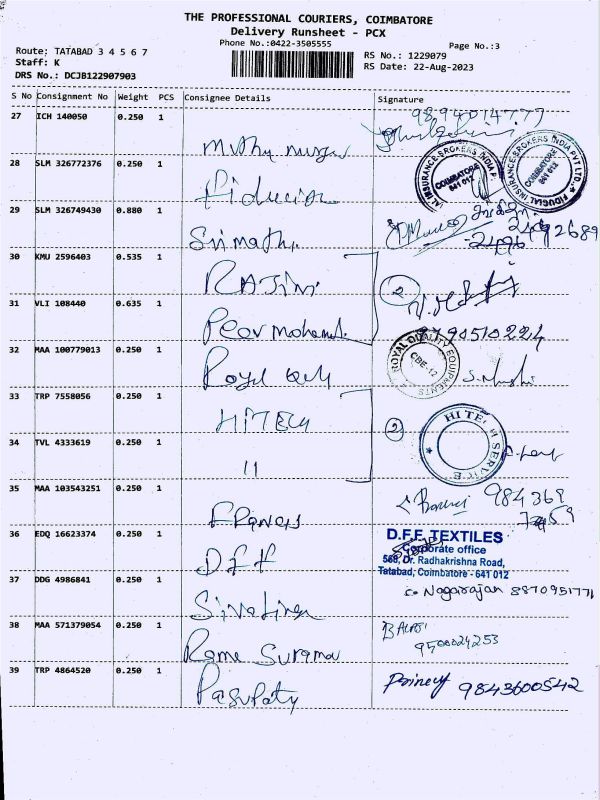 THE PROFESSIONAL COURIERS, COIMBATORE
Delivery Runsheet - PCX
Phone No.:0422-3505555
Page No.:3
Route: TATABAD 3 4 5 6 7
Staff: K
DRS No.: DCJB122907903
RS No.: 1229079
RS Date: 22-Aug-2023
S No Consignment No Weight PCS Consignee Details Signature
27 ICH 140050 0.250 1
28 SLM 326772376 0.250 1
FIDUCIAL INSURANCE BROKERS INDIA PVT LTD. COIMBATORE 641 012
29 SLM 326749430 0.880 1 Srimathi
30 KMU 2596403 0.535 1 RAJINI 2
31 VLI 108440 0.635 1 Peer Mohamed
32 MAA 100779013 0.250 1 Royal
ROYAL QUALITY EQUIPMENTS CBE-12
33 TRP 7558056 0.250 1 HITECH 2
HI TECH SERVICE
34 TVL 4333619 0.250 1 11
35 MAA 103543251 0.250 1
36 EDQ 16623374 0.250 1 D.F.F
D.F.F. TEXTILES
Corporate office
568, Dr. Radhakrishna Road,
Tatabad, Coimbatore - 641 012
37 DDG 4986841 0.250 1 Nagarajan 8870951771
38 MAA 571379054 0.250 1 BALAJI
9500024253
39 TRP 4864520 0.250 1 Pasupaty 9843600542